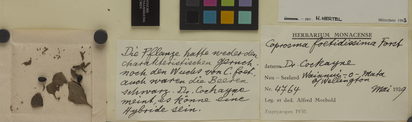 H. HERTEL
Die Pflanze hatte weder den
charakteristischen Geruch,
noch den Wuchs von C. foet.
auch waren die Beeren
schwarz. Dr. Cockayne
meint, es könne eine
Hybride sein.
HERBARIUM MONACENSE
Coprosma foetidissima Forst
Dr Cockayne
Neu-Seeland Wainui-o-Mata
b/Wellington
Nr. 4764 Mai 1929
Leg. et ded. Alfred Meebold